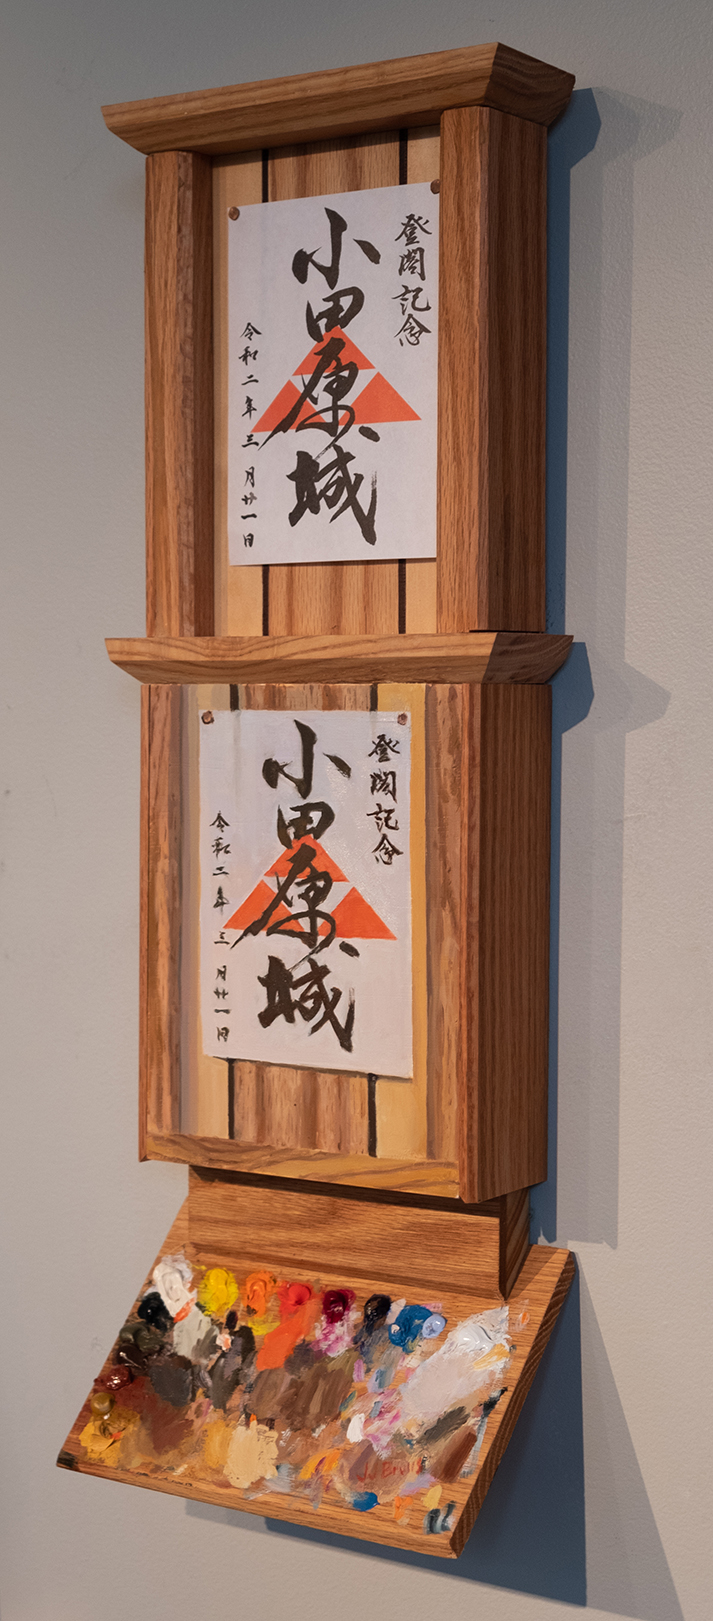 登閣記念
小田原城
令和二年三月廿一日
登閣記念
小田原城
令和二年三月廿一日